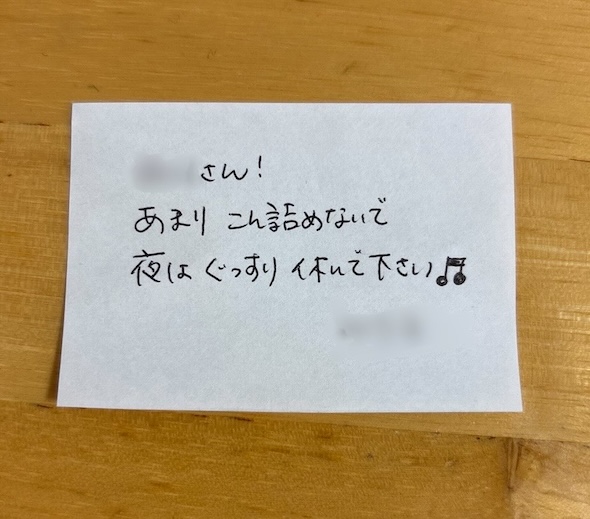 さん!
あまり こん詰めないで
夜は ぐっすり 休んで下さい♫